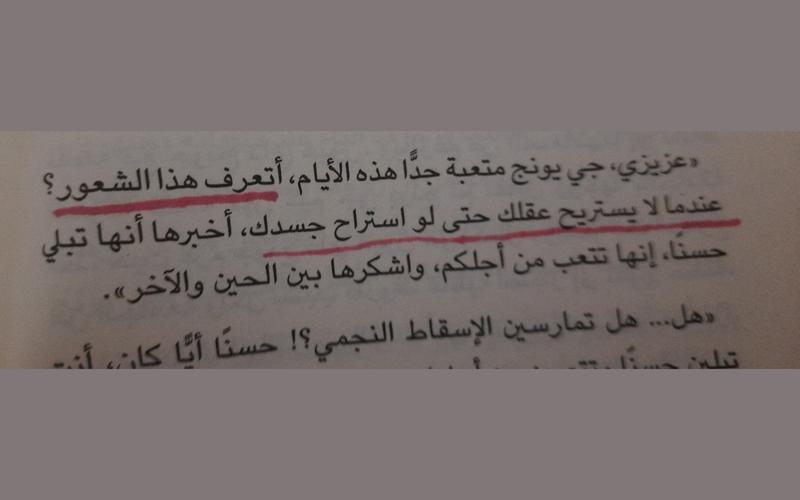 «عزيزي، جي يونج متعبة جدًّا هذه الأيام، أتعرف هذا الشعور؟
عندما لا يستريح عقلك حتى لو استراح جسدك، أخبرها أنها تبلي
حسنًا، إنها تتعب من أجلكم، واشكرها بين الحين والآخر».
«هل... هل تمارسين الإسقاط النجمي؟! حسنًا أيًّا كان، أنت
تبلين حسنًا